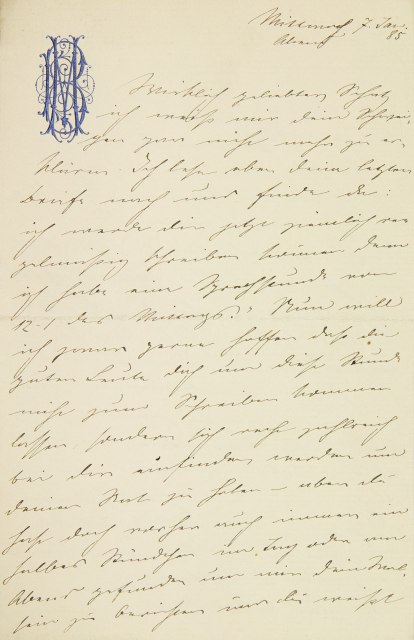 Mittwoch 7. Jan. 85
Abend
Wirklich geliebter Schatz
ich weiß mir dein Schwei-
gen gar nicht mehr zu er-
klären. Ich lese eben deine letzten
Briefe nach und finde da:
ich werde dir jetzt ziemlich re-
gelmäßig schreiben können denn
ich habe eine Sprechstunde von
12-1 des Mittags. Nun will
ich zwar gerne hoffen daß die
guten Leute dich um diese Stunde
nicht zum Schreiben kommen
lassen, sondern sich recht zahlreich
bei dir einfinden werden um
deinen Rat zu holen – aber du
hast doch vorher auch immer ein
halbes Stündchen am Tag oder am
Abend gefunden um mir dein
sein zu berichten und du weißt